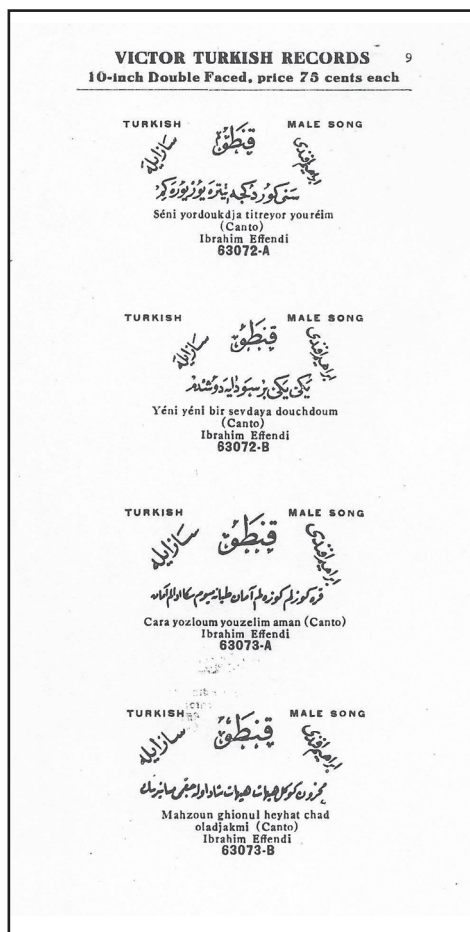 VICTOR TURKISH RECORDS 9
10-inch Double Faced, price 75 cents each
TURKISH MALE SONG
سازايله قنطو ابراهيم افندى
Séni yordoukdja titreyor youréim
(Canto)
Ibrahim Effendi
63072-A
TURKISH MALE SONG
سازايله قنطو ابراهيم افندى
Yéni yéni bir sevdaya douchdoum
(Canto)
Ibrahim Effendi
63072-B
TURKISH MALE SONG
سازايله قنطو ابراهيم افندى
Cara yozloum youzelim aman (Canto)
Ibrahim Effendi
63073-A
TURKISH MALE SONG
سازايله قنطو ابراهيم افندى
Mahzoun ghionul heyhat chad
oladjakmi (Canto)
Ibrahim Effendi
63073-B